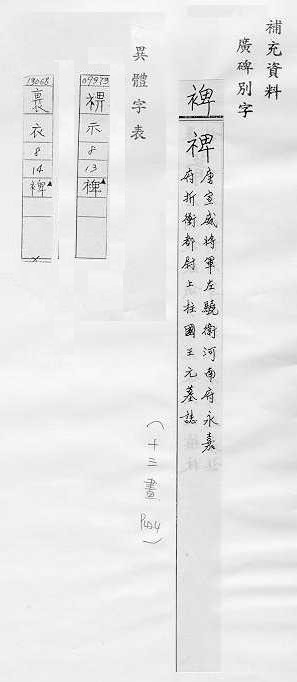 補充資料
廣碑別字
裨
禆
唐宣威將軍左驍衛河南府永嘉
府折衝都尉上柱國王元墓誌
(十三畫 P104)
異體字表
09973
禆
示
8
13
裨▲
13068
衣
8
14
裨▲